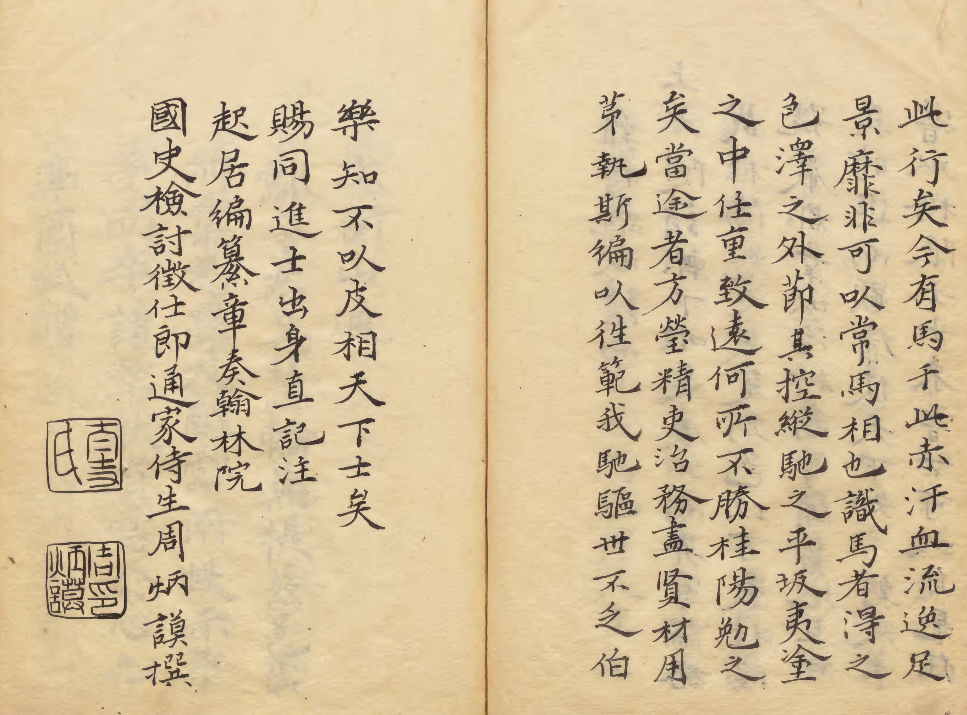 此行矣今有馬于此赤汗血流逸足
景靡非可以常馬相也識馬者得之
色澤之外節其控縱馳之平坂夷塗
之中任重致遠何所不勝桂陽勉之
矣當途者方瑩精吏治務盡賢材用
苐執斯編以徃範我馳驅世不乏伯
樂知不以皮相天下士矣
賜同進士出身直記注
起居編纂章奏翰林院
國史檢討徵仕郎通家侍生周炳謨撰
周印炳謨